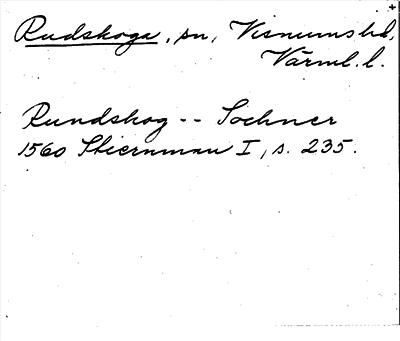 Rudskoga, sn, Visnums hd,
Värml. l.
Rundskog -- Sochner
1560 Stiernman I, s. 235.